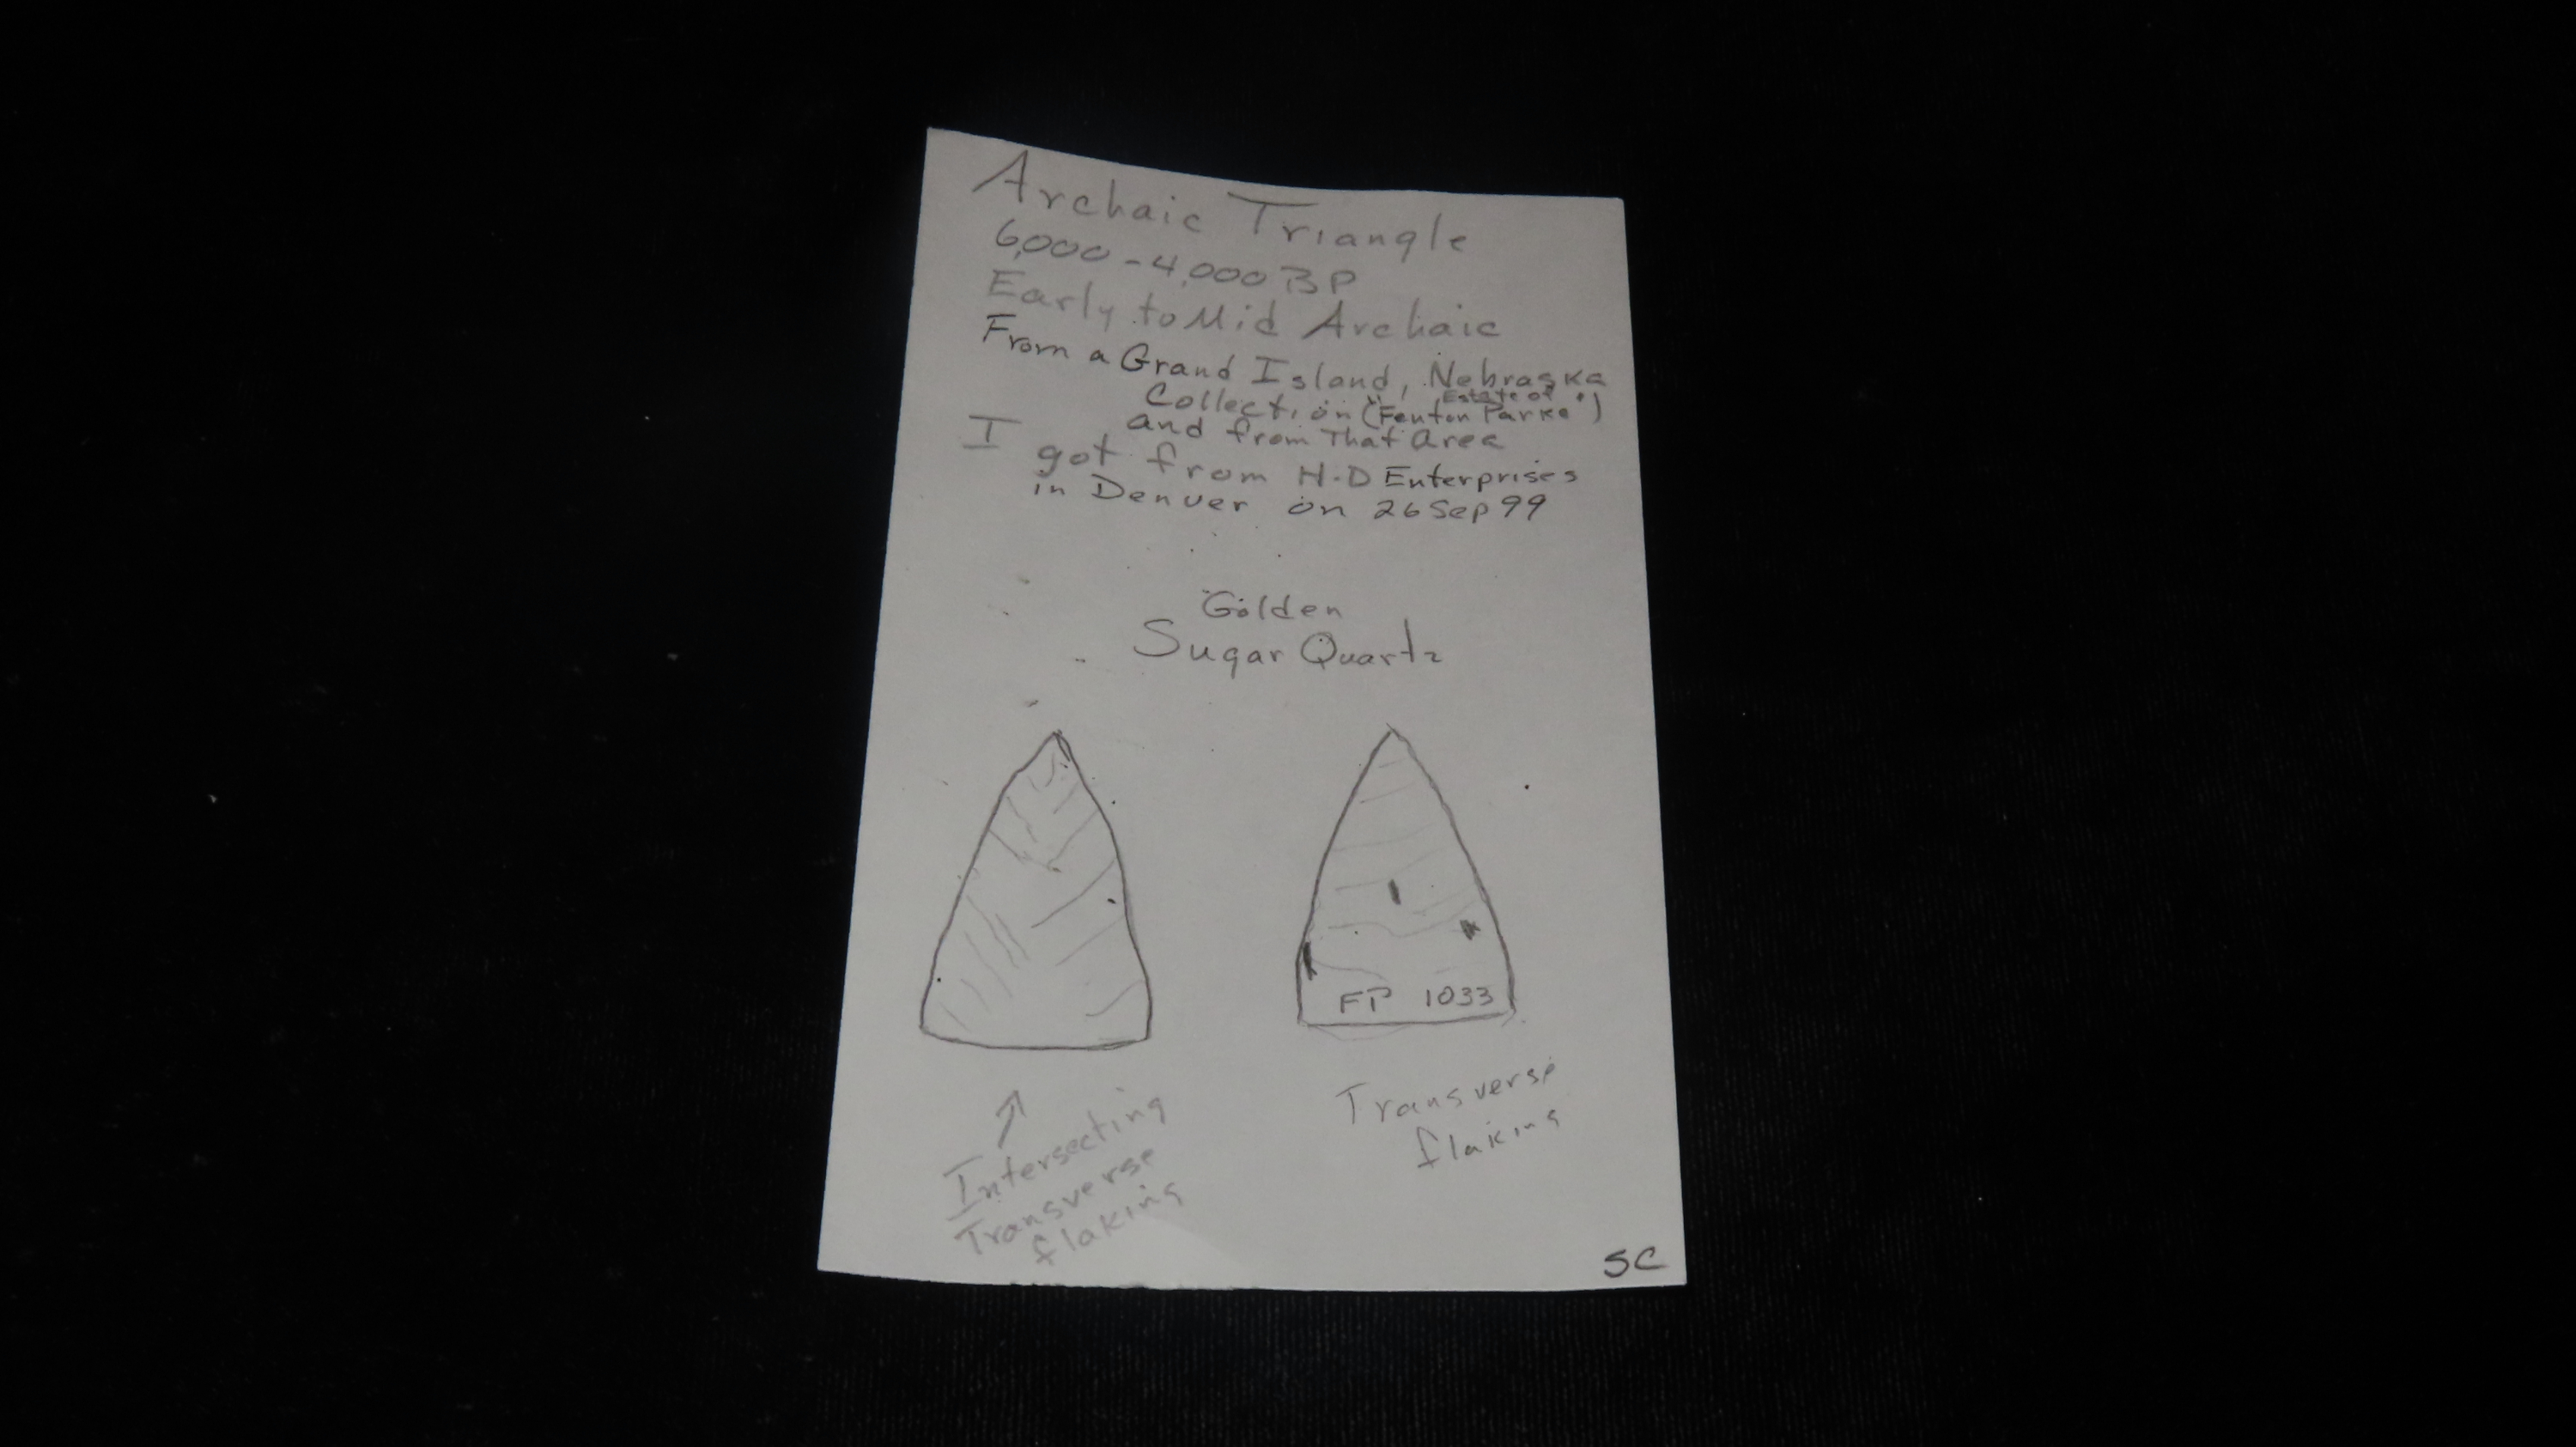 Archaic Triangle
6,000-4,000 BP
Early to Mid Archaic
From a Grand Island, Nebraska
Collection ("Estate of Fenton Parke")
and from That Area
I got from H-D Enterprises
in Denver on 26 Sep 99
Golden
Sugar Quartz
FP 1033
Intersecting
Transverse
flaking
Transverse
flaking
SC